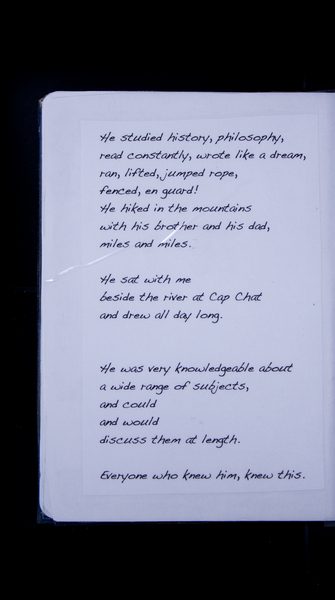 He studied history, philosophy,
read constantly, wrote like a dream,
ran, lifted, jumped rope,
fenced, en guard!
He hiked in the mountains
with his brother and his dad,
miles and miles.
He sat with me
beside the river at Cap Chat
and drew all day long.
He was very knowledgeable about
a wide range of subjects,
and could
and would
discuss them at length.
Everyone who knew him, knew this.